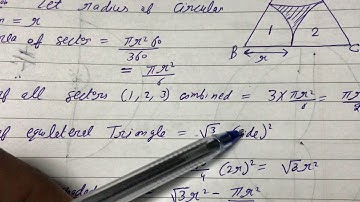 Let radius of circular
= r
of sector = πr²60
360
= πr²
6
of all sectors (1, 2, 3) combined = 3 × πr² = πr²
of equilateral Triangle = √3 )²
4 (2r)² = √3r²
√3r² − πr²
1 2
B C
r